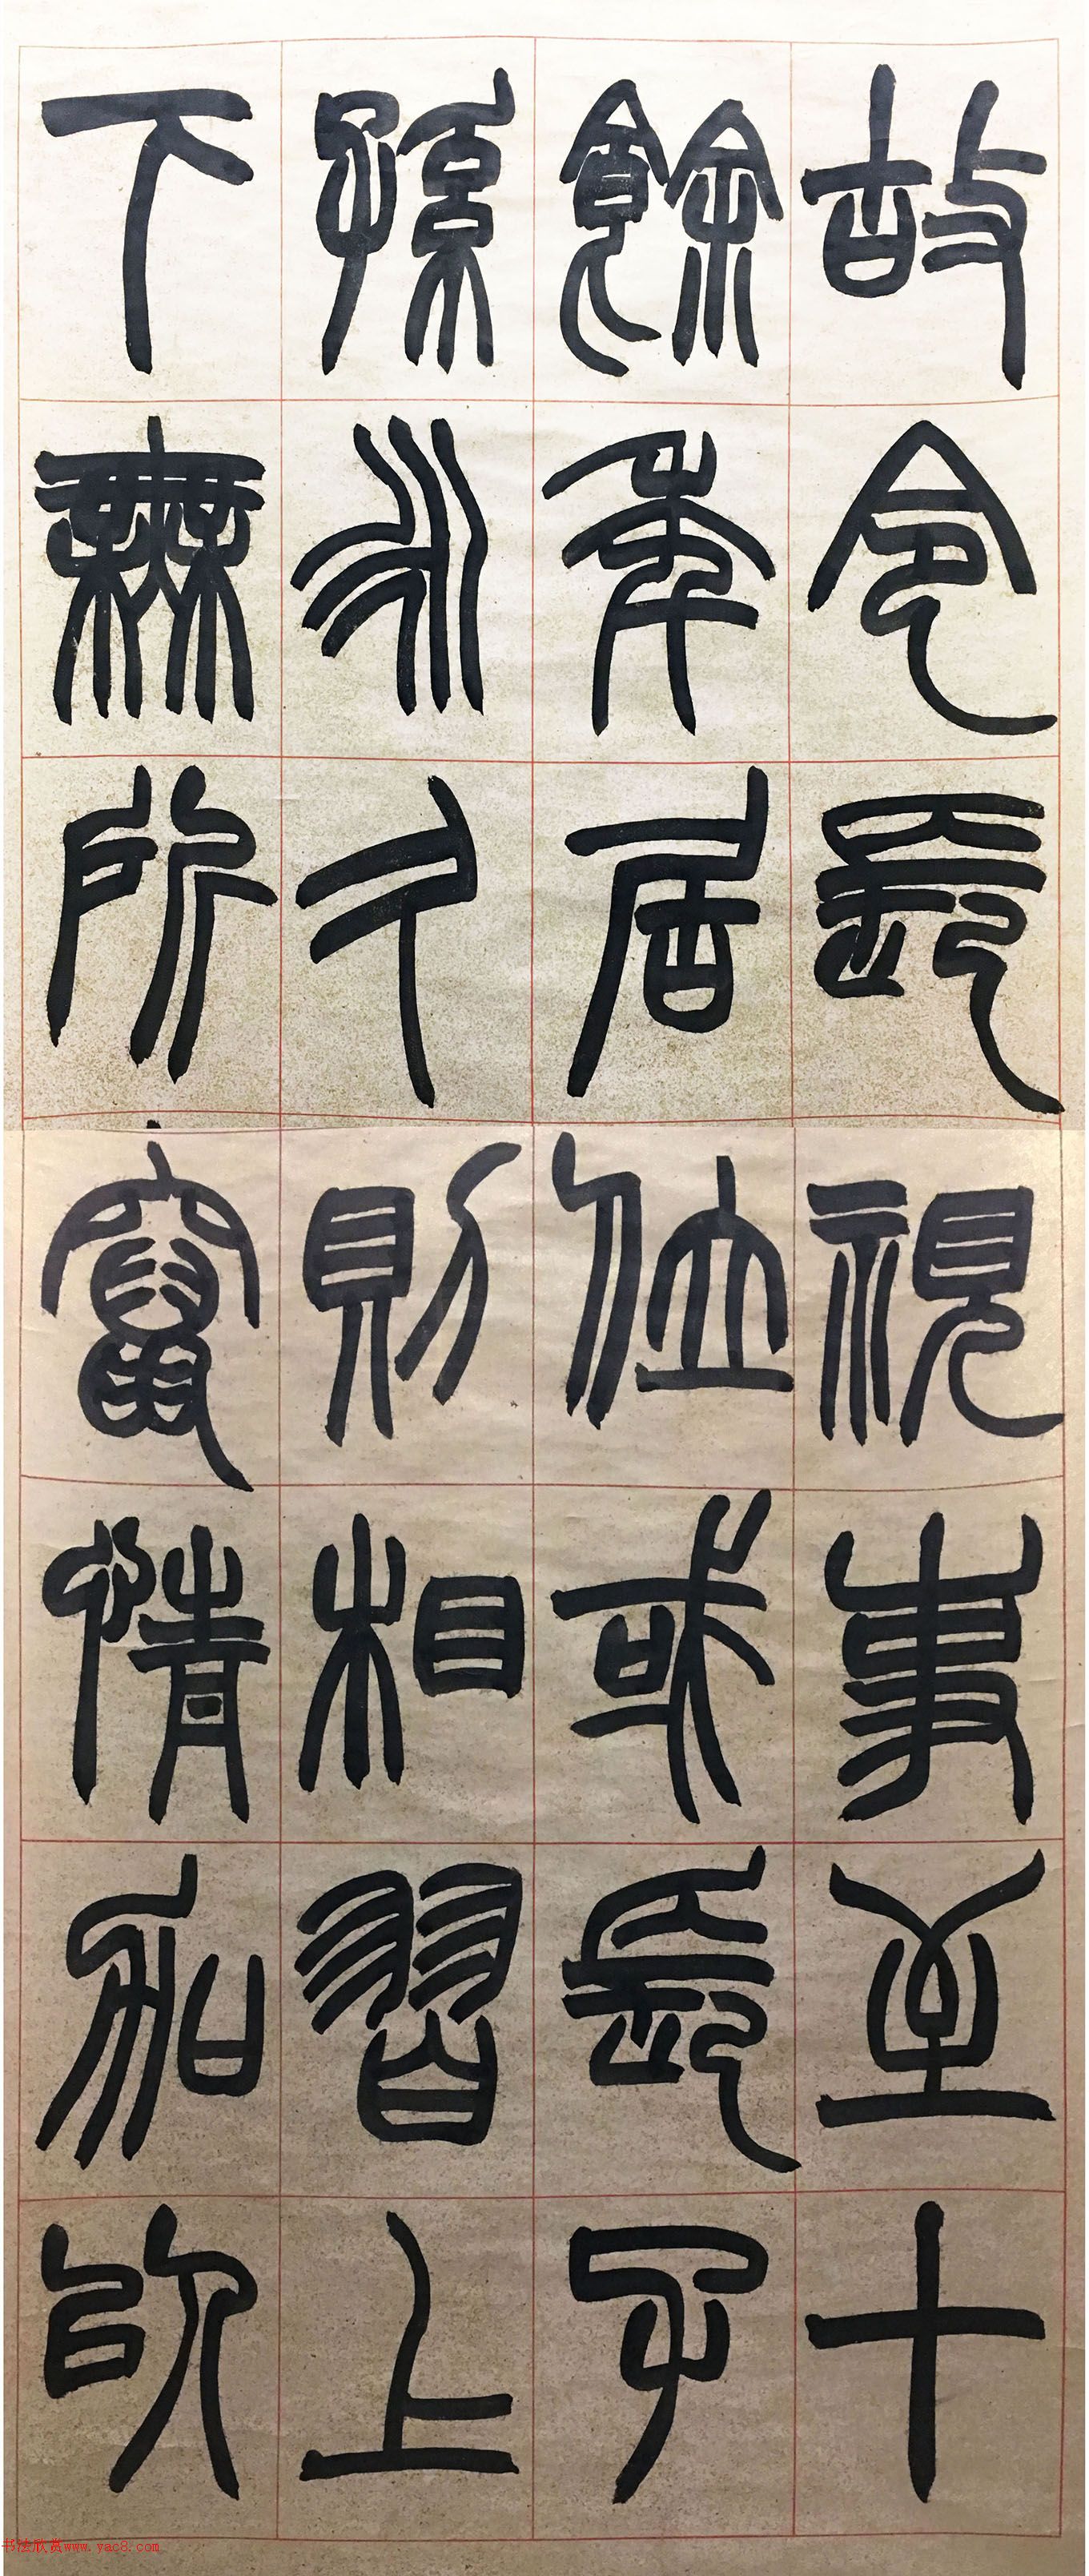 故令長視事至十
餘年居位或長子
孫永久則相習上
下無所竄情加以
书法欣赏www.yac8.com